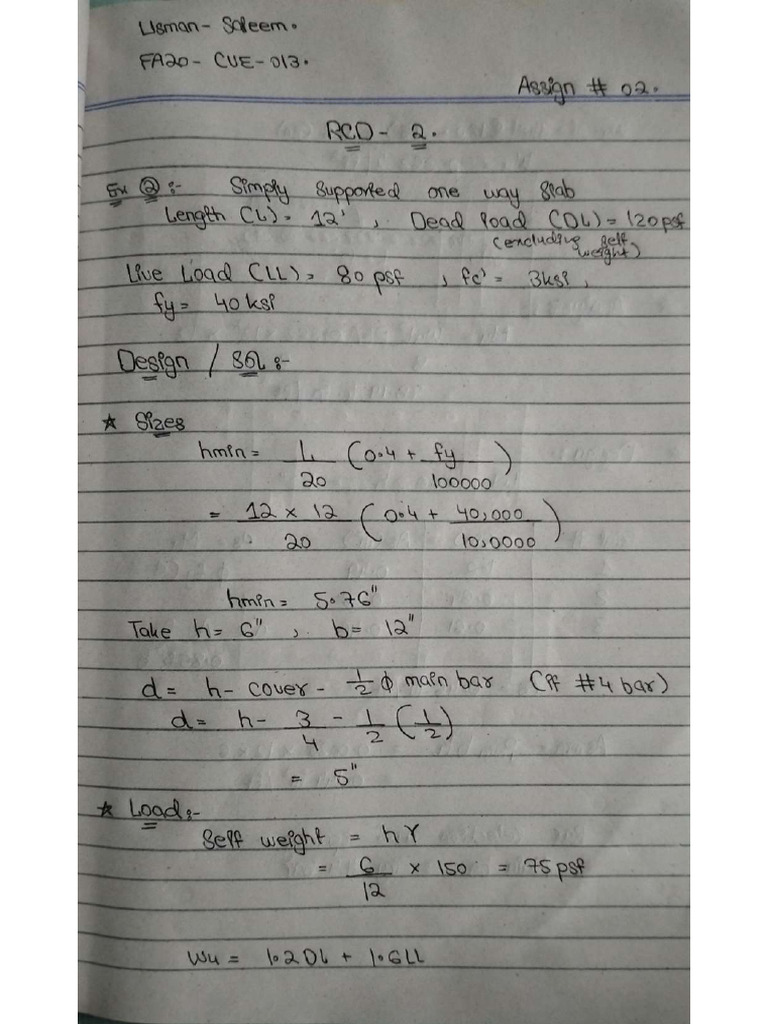 Usman - Saleem.
FA20 - CUE - 013.
Assign # 02.
RCD - 2.
Ex ② :- Simply supported one way slab
Length (L) = 12' , Dead load (DL) = 120 psf
(excluding self weight)
Live Load (LL) = 80 psf , fc' = 3ksi ,
fy = 40 ksi
Design / Sol :-
* Sizes
hmin = L/20 (0.4 + fy/100000)
= 12 × 12/20 (0.4 + 40,000/10,0000)
hmin = 5.76"
Take h = 6" , b = 12"
d = h - cover - 1/2 ϕ main bar (if #4 bar)
d = h - 3/4 - 1/2 (1/2)
= 5"
* Load :-
Self weight = hγ
= 6/12 × 150 = 75 psf
Wu = 1.2DL + 1.6LL